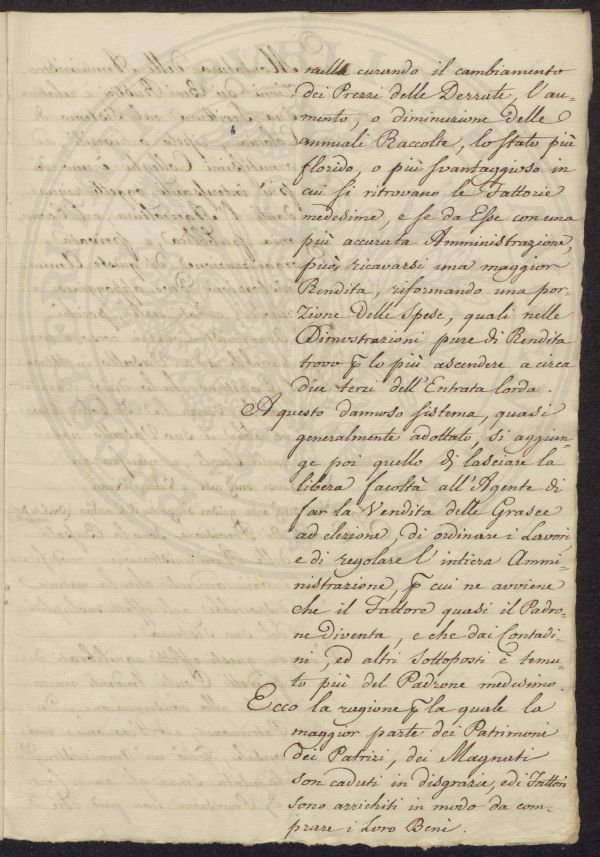 nulla curando il cambiamento
dei Prezzi delle Derrate, l'au-
mento, o diminuzione delle
annuali Raccolte, lo stato più
florido, o più svantaggioso in
cui si ritrovano le Fattorie
medesime, e se da Esse con una
più accurata Amministrazione,
può, ricavarsi una maggior
Rendita, riformando una por-
zione delle Spese, quali nelle
Dimostrazioni pure di Rendita
trovo ꝑ lo più ascendere a circa
due terzi dell'Entrata lorda.
A questo dannoso sistema, quasi
generalmente adottato, si aggiun-
ge poi quello di lasciare la
libera facoltà all'Agente di
far la Vendita delle Grasce
ad elezione, di ordinare i Lavori,
e di regolare l'intiera Ammi-
nistrazione, ꝑ cui ne avviene
che il Fattore quasi il Padro-
ne diventa, e che dai Contadi-
ni, ed altri sottoposti è temu-
to più del Padrone medesimo.
Ecco la ragione ꝑ la quale la
maggior parte dei Patrimoni
dei Patrizi, dei Magnati
son caduti in disgrazia, ed i Fattori
sono arrichiti in modo da com-
prare i Loro Beni.